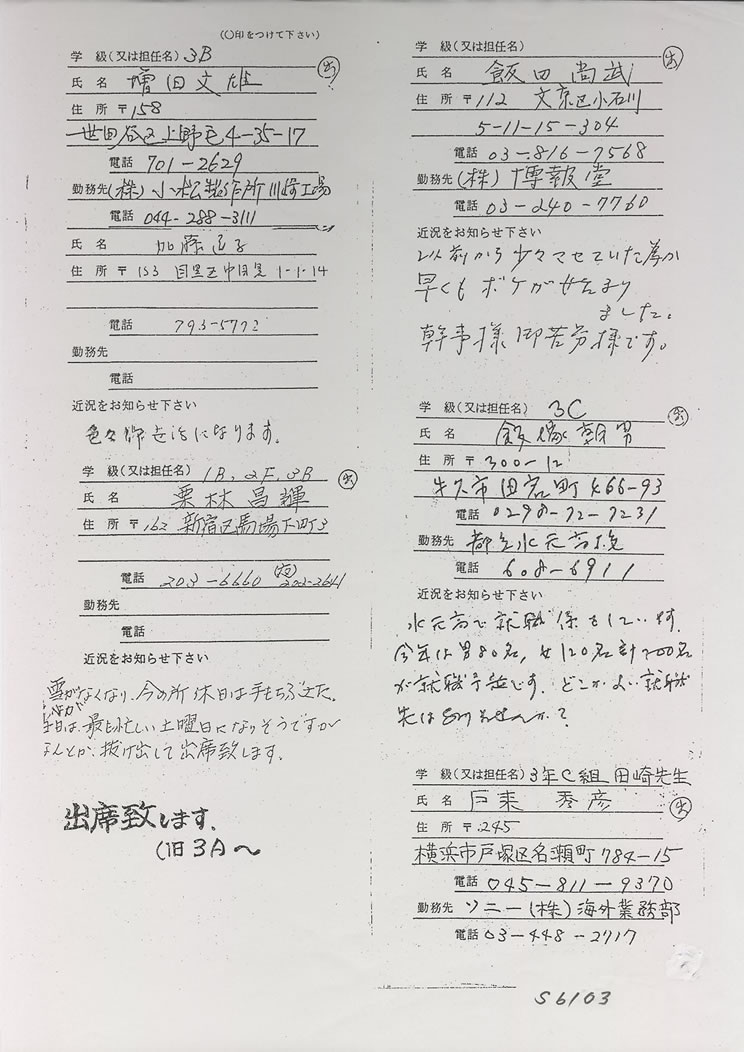 (〇印をつけて下さい)
学 級(又は担任名) 3B
氏 名 増田文雄 出
住 所 〒158
世田谷区上野毛4-35-17
電話 701-2629
勤務先 (株)小松製作所川崎工場
電話 044-288-3111
氏 名 加藤
住 所 〒153 目黒区中目黒 1-1-14
電話 793-5772
勤務先
電話
近況をお知らせ下さい
色々御世話になります。
学 級(又は担任名) 1B, 2F, 3B
氏 名 栗林昌輝 出
住 所 〒162 新宿区馬場下町3
電話 203-6660 202-2641
勤務先
電話
近況をお知らせ下さい
雪がなくなり、今の所休日は手もちぶさた。
当日は、最も忙しい土曜日になりそうですが
なんとか、抜け出して出席致します。
出席致します。
(旧3A〜
学 級(又は担任名)
氏 名 飯田尚武 出
住 所 〒112 文京区小石川
5-11-15-304
電話 03-816-7568
勤務先 (株)博報堂
電話 03-240-7760
近況をお知らせ下さい
以前から少々マセていた為か
早くもボケが始まり
ました。
幹事様御苦労様です。
学 級(又は担任名) 3C
氏 名 飯塚朝男 出
住 所 〒300-12
牛久市田宮町466-93
電話 0298-72-7231
勤務先 都立水元高校
電話 608-6911
近況をお知らせ下さい
水元高で就職係をしています。
今年は男80名,女120名計200名
が就職予定です。どこかよい就職
先はありませんか?
学 級(又は担任名) 3年C組 田崎先生
氏 名 戸来 秀彦 出
住 所 〒245
横浜市戸塚区名瀬町784-15
電話 045-811-9370
勤務先 ソニー(株)海外業務部
電話 03-448-2717
S6103